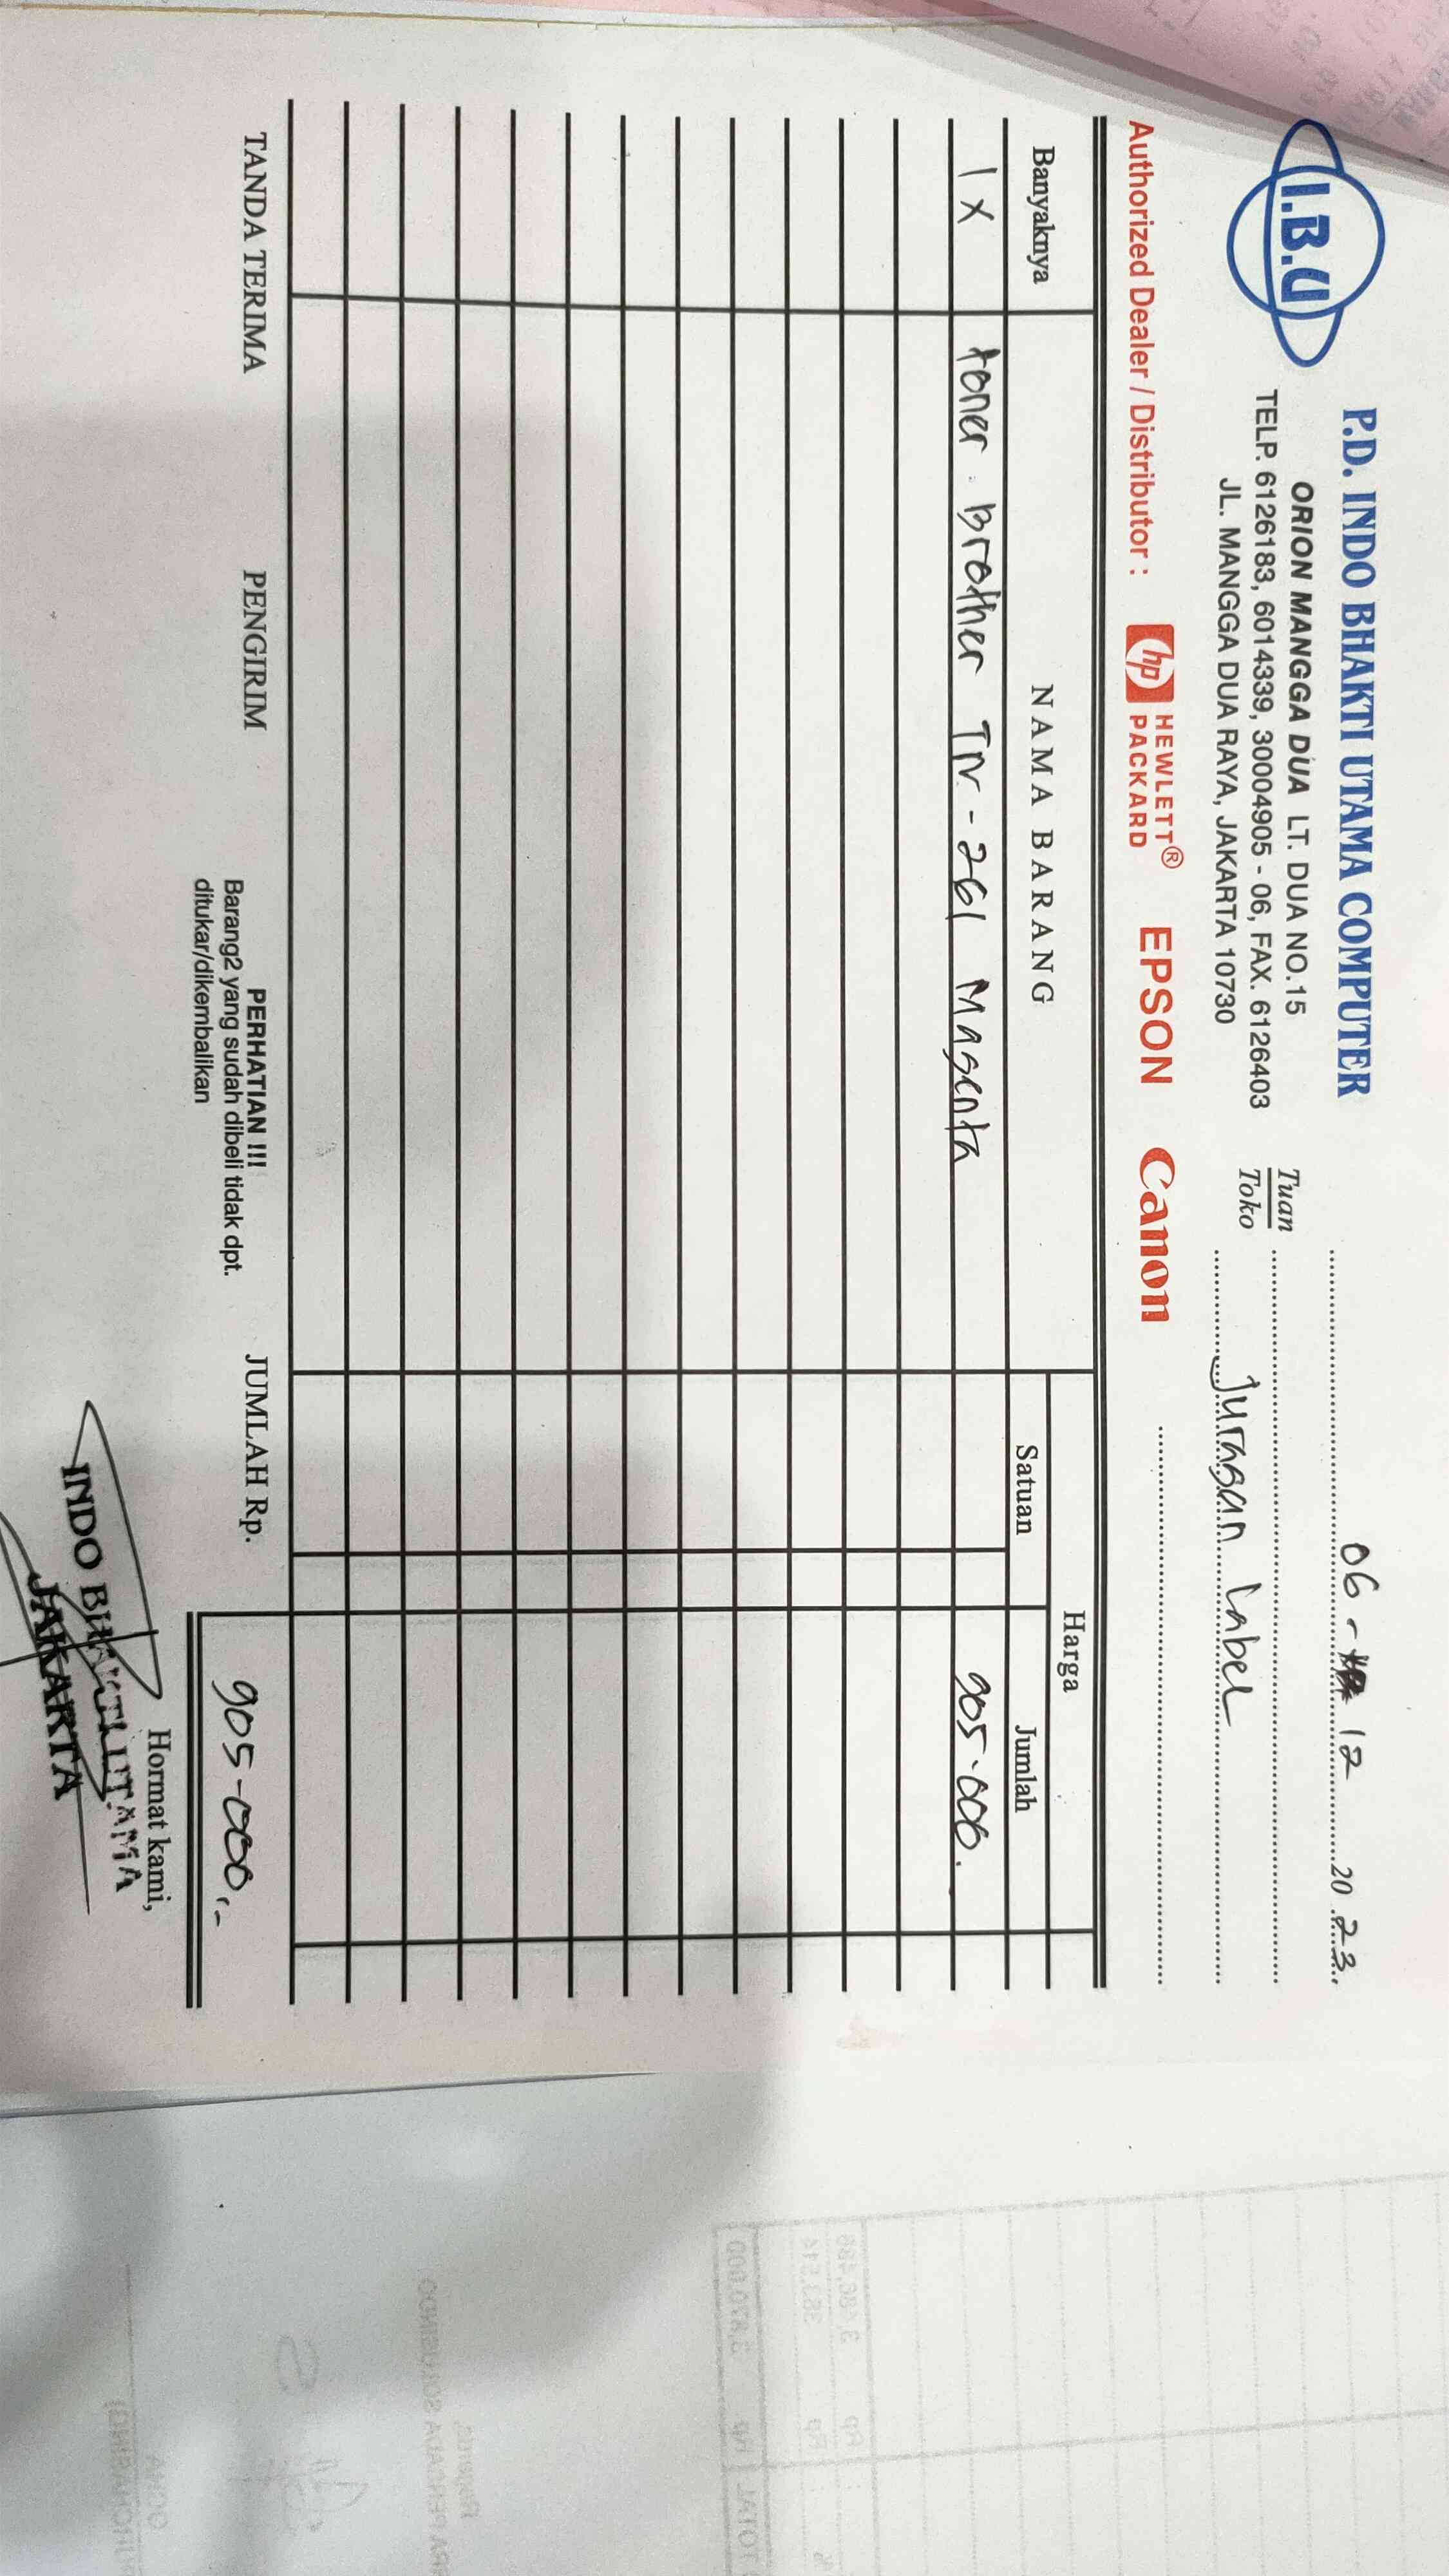 I.B.U
P.D. INDO BHAKTI UTAMA COMPUTER
ORION MANGGA DUA LT. DUA NO.15
TELP. 6126183, 6014339, 30004905 - 06, FAX. 6126403
JL. MANGGA DUA RAYA, JAKARTA 10730
06 - 12 20 23
Tuan
Toko
Juragan Label
Authorized Dealer / Distributor : hp HEWLETT® PACKARD EPSON Canon
Banyaknya NAMA BARANG Harga
Satuan Jumlah
1 X toner Brother TN - 261 Magenta 905.000.
TANDA TERIMA PENGIRIM JUMLAH Rp. 905.000,-
PERHATIAN !!!
Barang2 yang sudah dibeli tidak dpt.
ditukar/dikembalikan
Hormat kami,
INDO BHAKTI UTAMA
JAKARTA